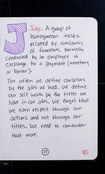 J Jobs: A group of
homogeneous tasks
related by similarity
of functions. Normally
conducted by an employee in
exchange for a payment (monetary
or barter).
Too often we define ourselves
by the jobs we hold. We define
our self worth by the titles we
have in our jobs. We forget that
we earn respect through our
actions and not through our
titles. We need to remember
that more.